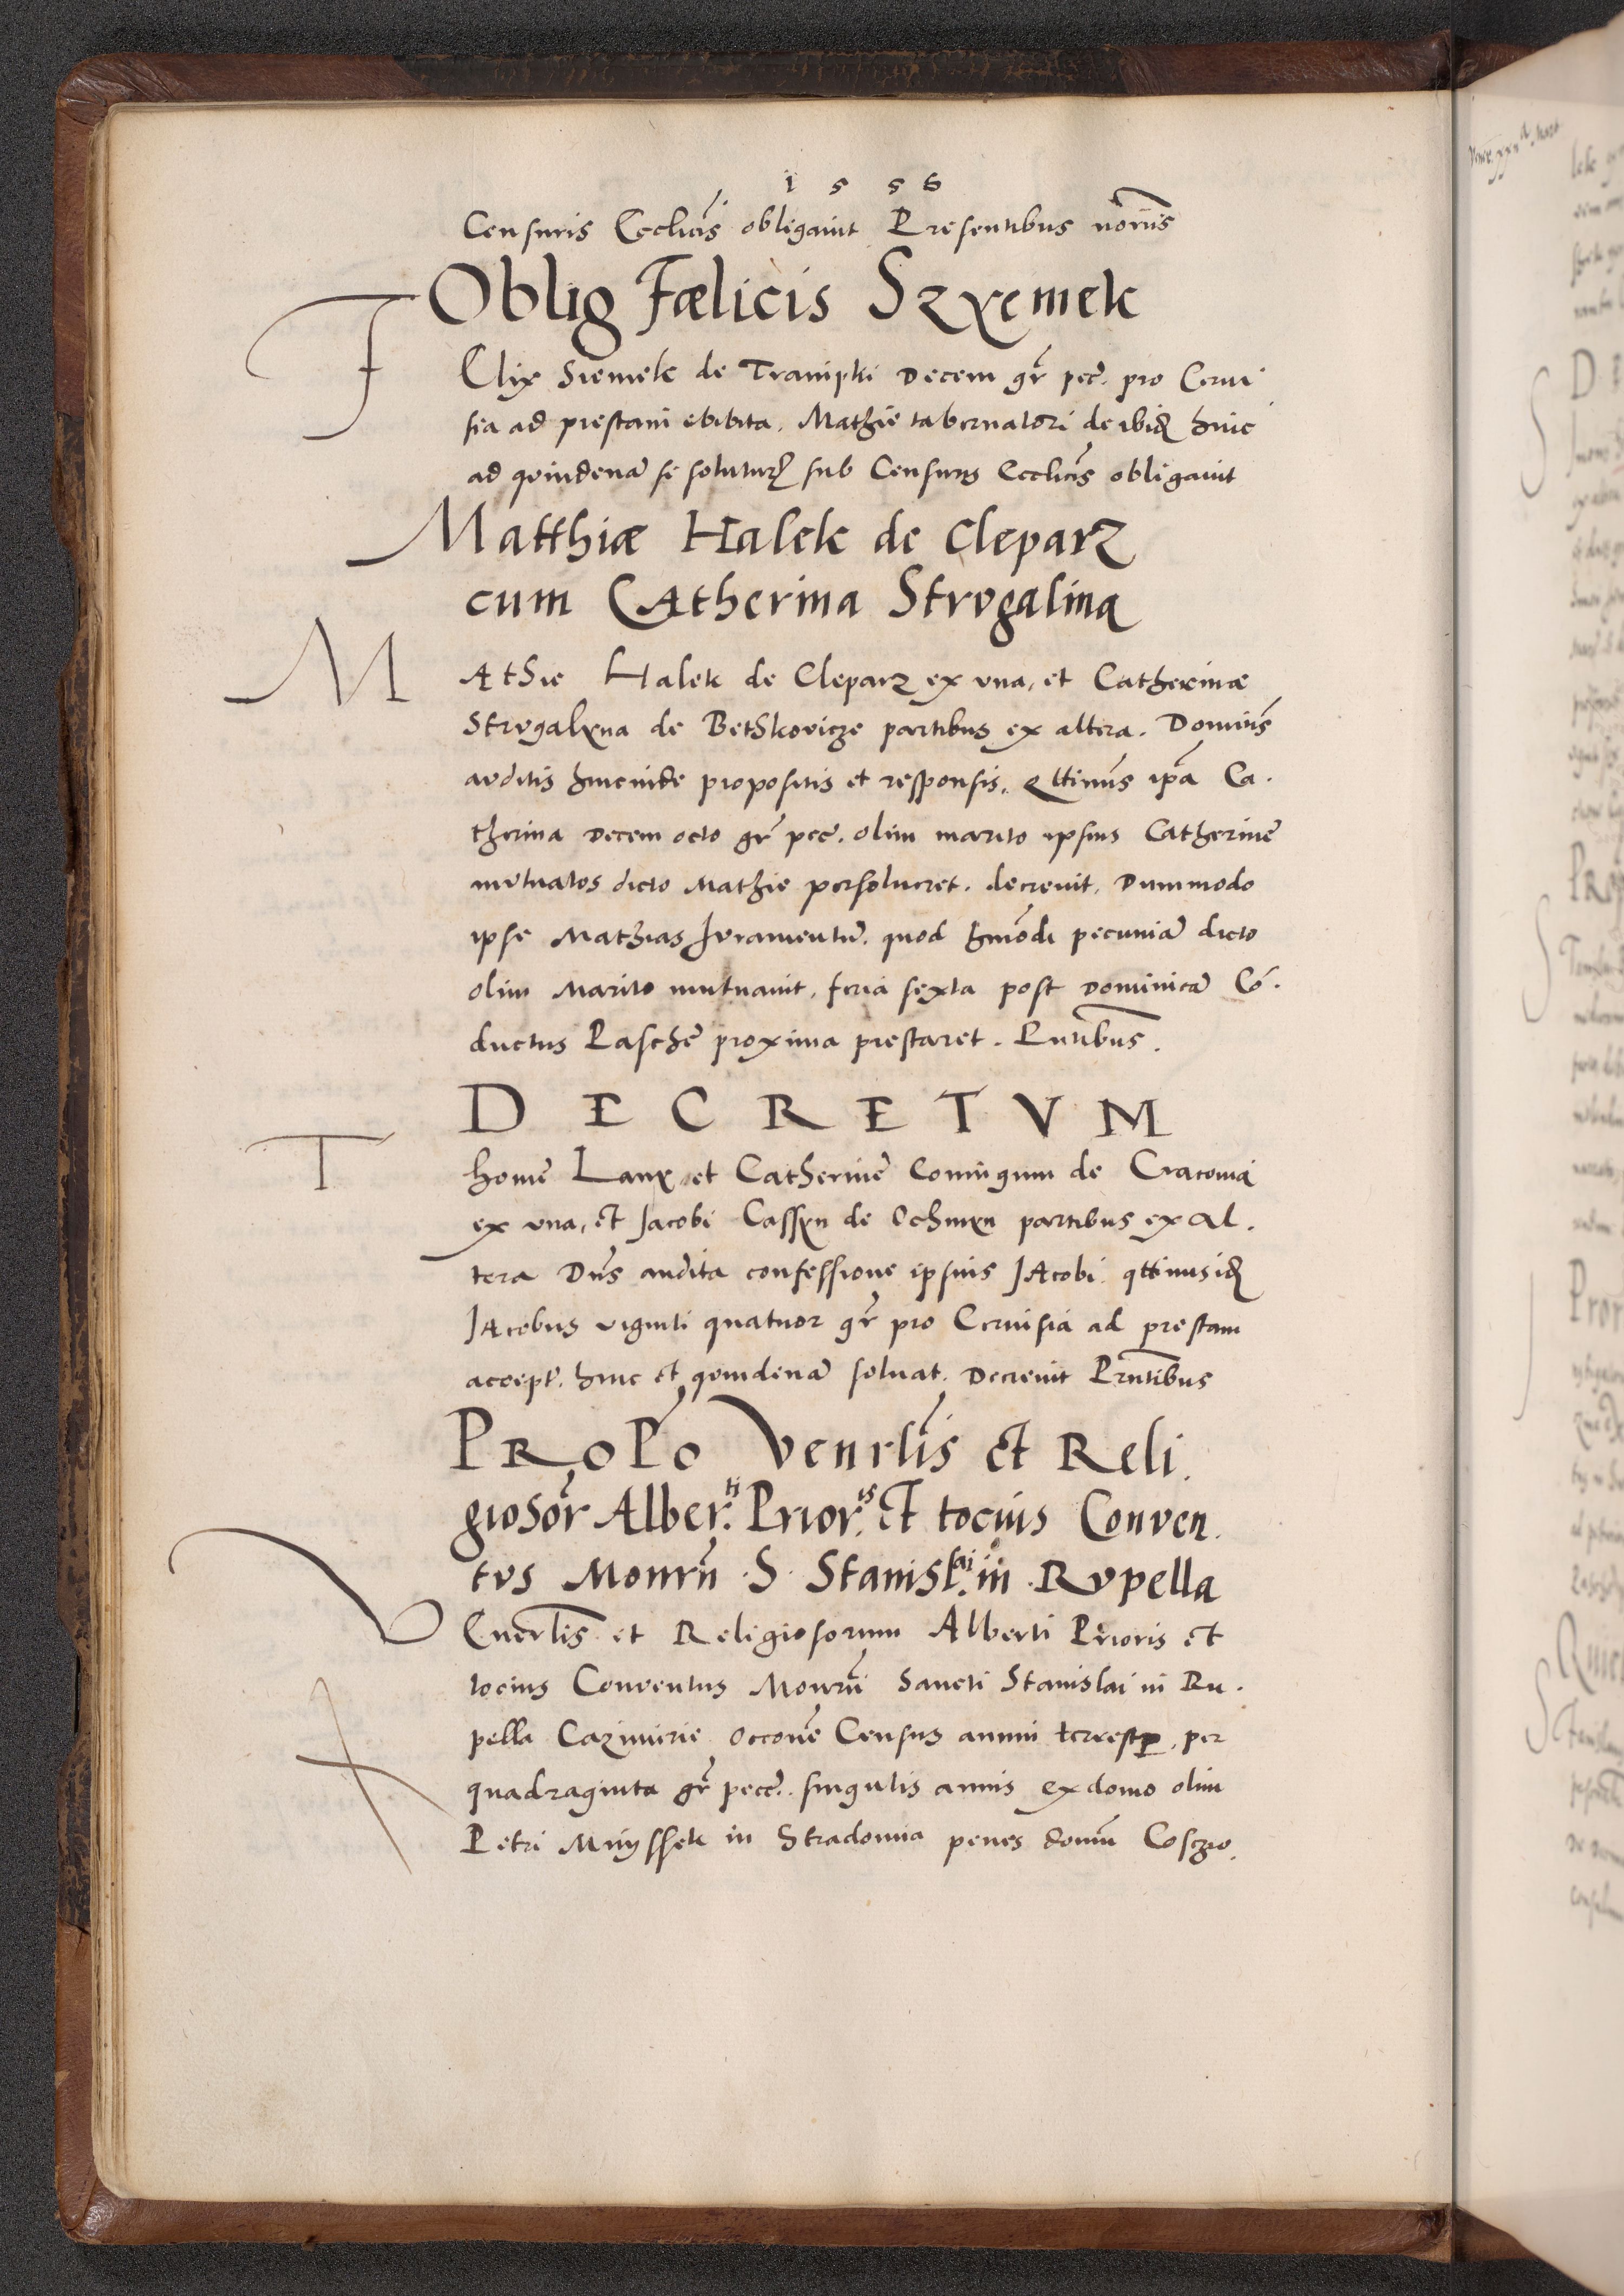 1 5 5 6
Censuris Ecclicis obligavit Presentibus noriis
Oblig Fælicis Szyemek
FElix Siemek de Trampki Decem gr pec. pro Cerui
sia ad prestam ebibita. Mathie tabernatori de ibid hinc
ad quindena se soluturum sub Censuris Ecclicis obligauit
Matthiæ Halek de Cleparz
cum CAtherina Strvgalina
MAthie Halek de Cleparz ex vna, et Catherinæ
Strvgalyna de Betskovicze partibus ex altera. Dominus
avditis hincinde propositis et responsis. qttinus ipa Ca.
therina Decem octo gr pec. olim marito ipsius Catherine
mutuatos dicto Mathie persolueret. decreuit. Dummodo
ipse Mathias Jvramentu. quod hmodi pecunia dicto
olim Marito mutuauit, feria sexta post Dominica Co.
ductus Pasche proxima prestaret. Pntibus.
DECRETVM
Thome Lany et Catherine Coniugum de Cracouia
ex vna, et Jacobi Cassyn de Ochmyn partibus ex al.
tera Dns audita confessione ipsius JAcobi qttinus id
JAcobus viginti quatuor gr pro Ceruisia ad prestam
accept. hinc et quindena soluat. Decreuit Prntibus
PROPo Venrlis et Reli.
giosor Alber.ti Prior.is et tocius Conven.
tvs Monrii S. Stanisl.ai in Rvpella
VEnerlis et Religiosorum Alberti Prioris et
tocius Conventus Monrii Sancti Stanislai in Ru.
pella Cazimirie occone Census annui terrestr, per
quadraginta gr pecc. singulis annis ex domo olim
Petri Miyssek in Stradomia penes domu Cosczio.